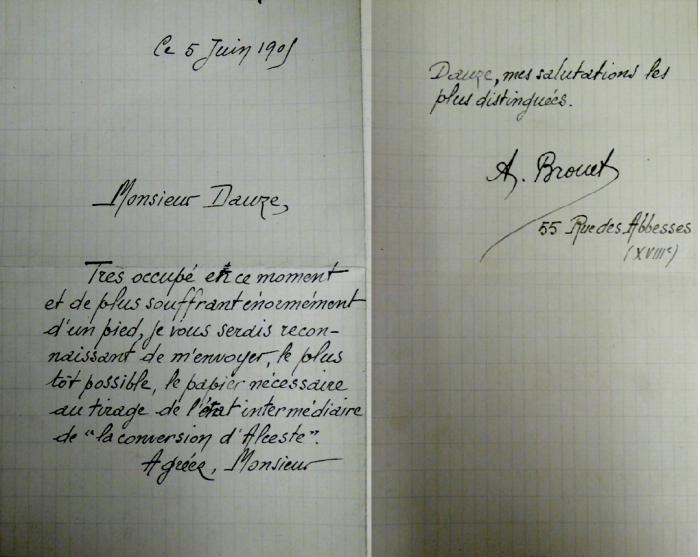 Ce 5 Juin 1905
Monsieur Dauze,
Tres occupé en ce moment
et de plus souffrant énormément
d'un pied, je vous serais recon-
naissant de m'envoyer, le plus
tôt possible, le papier nécessaire
au tirage de l'état intermédiaire
de "la conversion d'Alceste".
Agréez, Monsieur
Dauze, mes salutations les
plus distinguées.
A. Brouet
55 Rue des Abbesses
(XVIIIe)